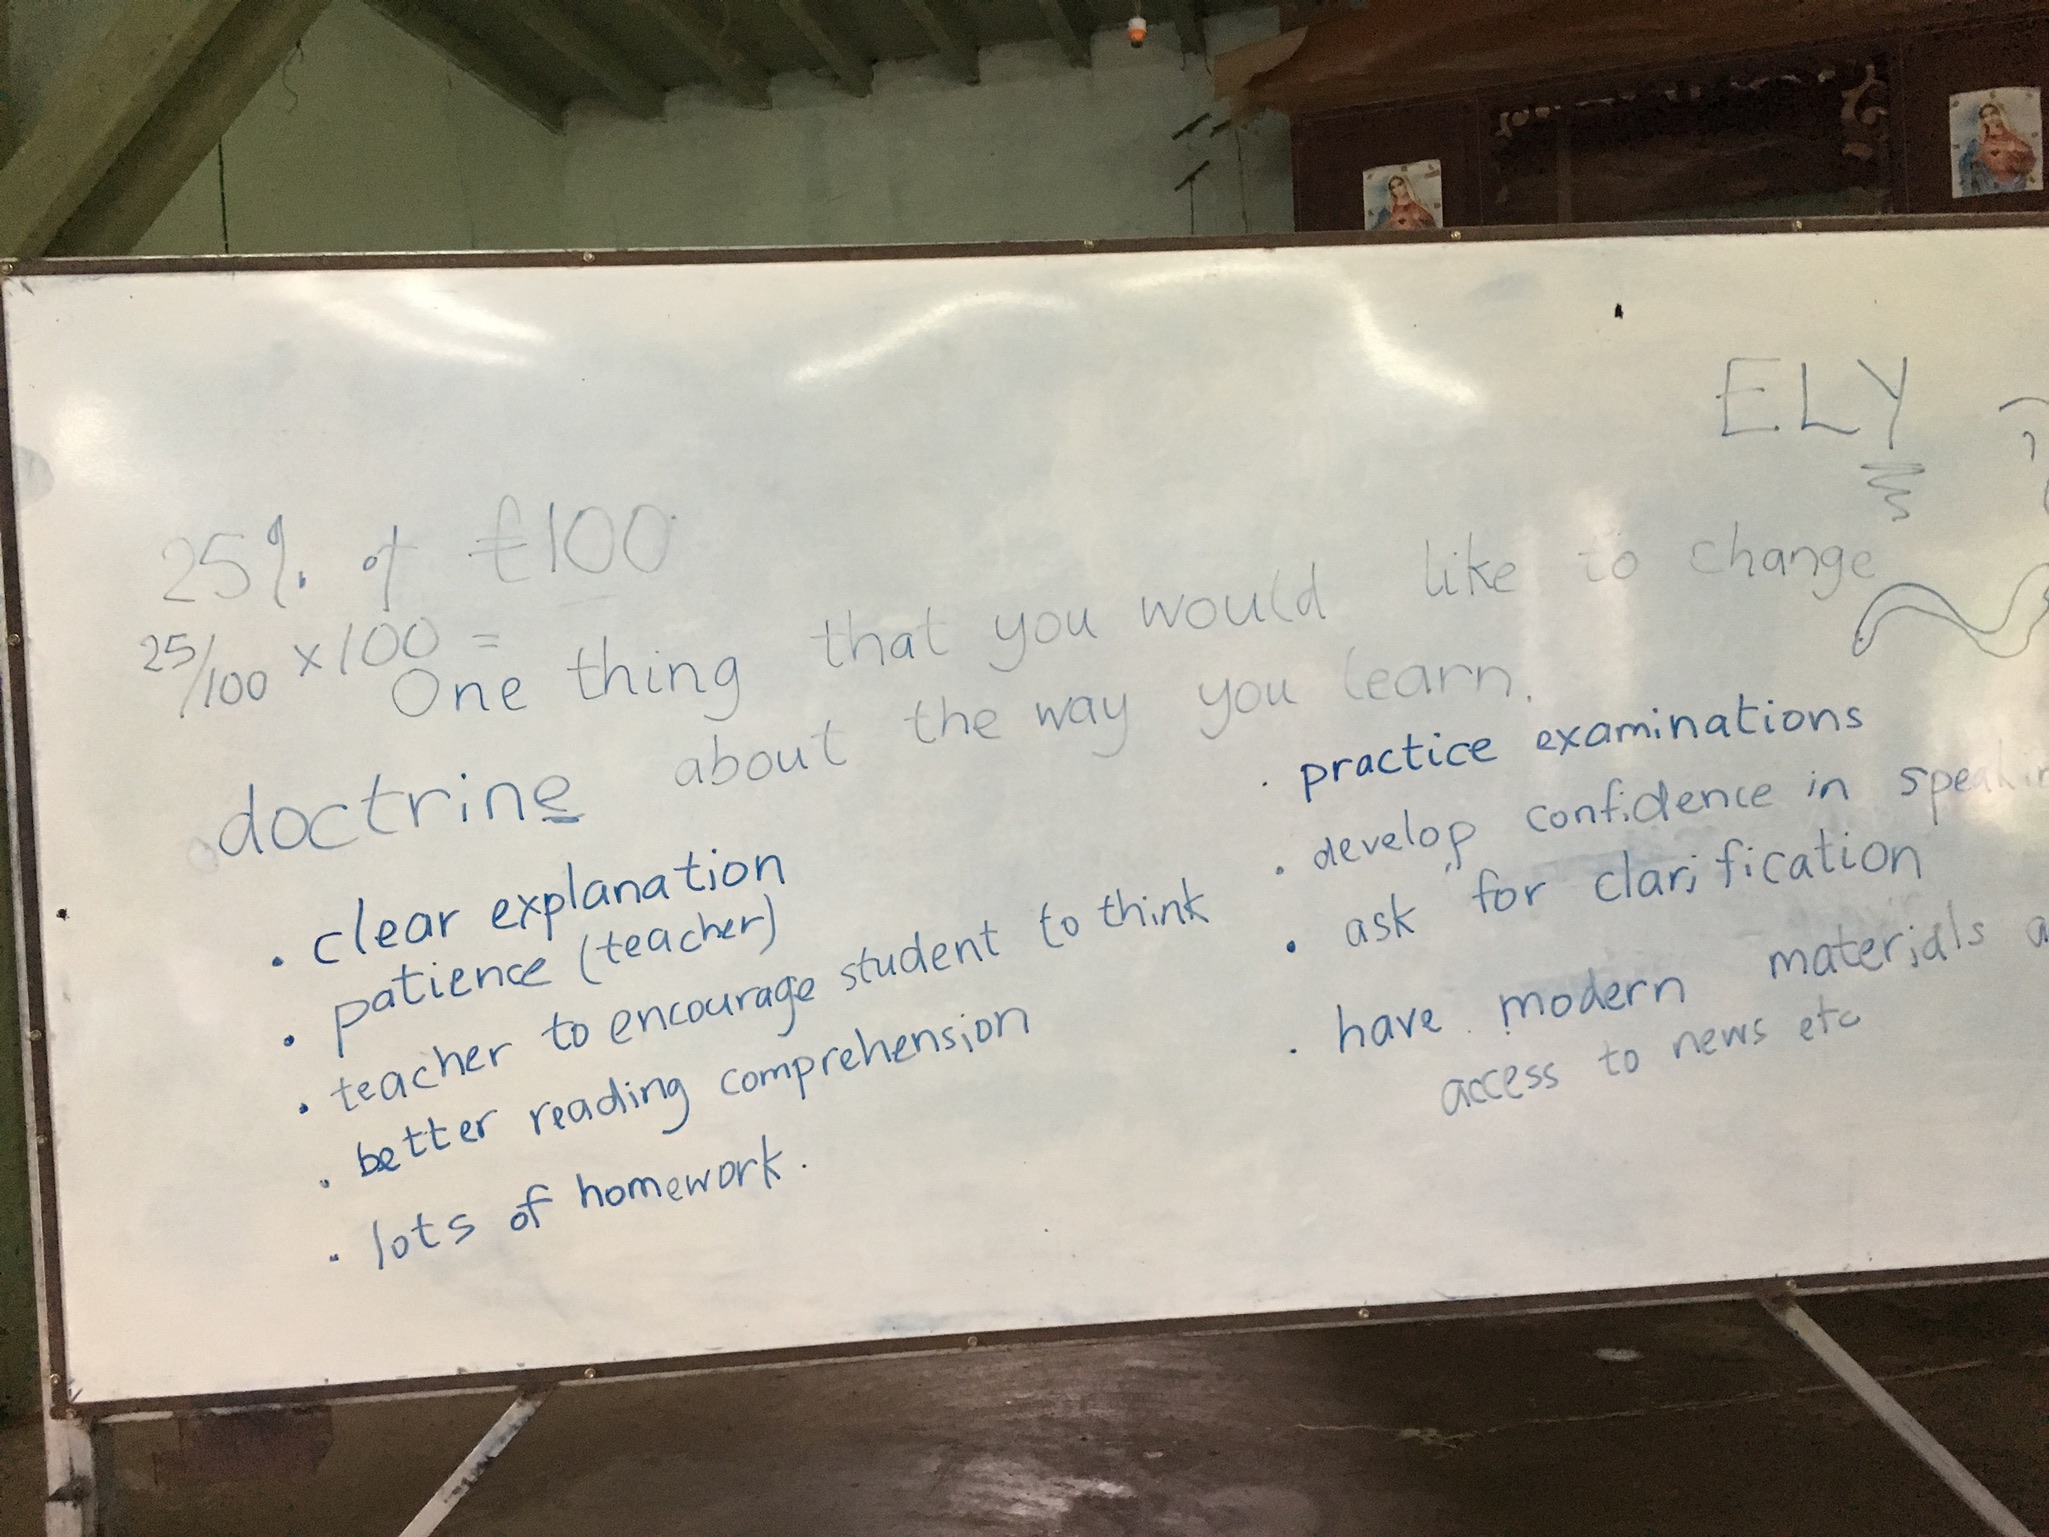 ELY
25% of £100
25/100 x 100 =
One thing that you would like to change
about the way you learn.
doctrine
• clear explanation
• patience (teacher)
• teacher to encourage student to think
• better reading comprehension
• lots of homework.
• practice examinations
• develop confidence in speakin
• ask for clarification
• have modern materials a
access to news etc